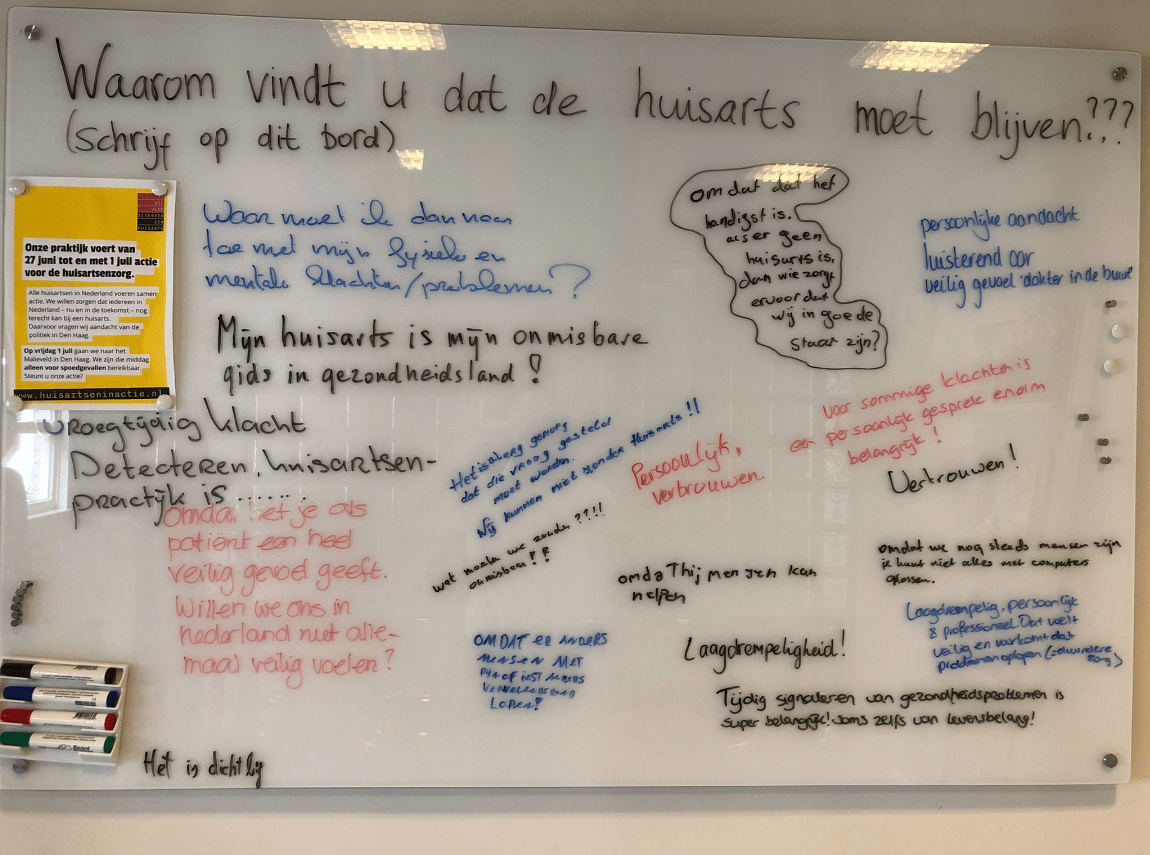 Waarom vindt u dat de huisarts moet blijven???
(schrijf op dit bord)
WIJ
VOOR
IEDEREEN
EEN
HUISARTS
Onze praktijk voert van
27 juni tot en met 1 juli actie
voor de huisartsenzorg.
Alle huisartsen in Nederland voeren samen
actie. We willen zorgen dat iedereen in
Nederland – nu en in de toekomst – nog
terecht kan bij een huisarts.
Daarvoor vragen wij aandacht van de
politiek in Den Haag.
Op vrijdag 1 juli gaan we naar het
Malieveld in Den Haag. We zijn die middag
alleen voor spoedgevallen bereikbaar.
Steunt u onze actie?
www.huisartseninactie.nl
Waar moet ik dan naar
toe met mijn fysieke en
mentale klachten/problemen?
omdat dat het
handigst is.
als er geen
huisarts is,
dan wie zorgt
ervoor dat
wij in goede
staat zijn?
persoonlijke aandacht
luisterend oor
veilig gevoel 'dokter in de buurt'
Mijn huisarts is mijn onmisbare
gids in gezondheidsland!
vroegtijdig klacht
Detecteren, huisartsen-
practijk is .......
Het is al erg genoeg
dat die vraag gesteld
moet worden.
Wij kunnen niet zonder Huisarts!!
Persoonlijk,
vertrouwen.
voor sommige klachten is
een persoonlijk gesprek enorm
belangrijk!
Vertrouwen!
omdat het je als
patiënt een heel
veilig gevoel geeft.
Willen we ons in
nederland niet alle-
maal veilig voelen?
wat moeten we zonder ??!!!
onmisbaar!!
omdat hij mensen kan
helpen
omdat we nog steeds mensen zijn
je kunt niet alles met computers
oplossen.
OMDAT ER ANDERS
MENSEN MET
PIJN OF IETS ANDERS
LOPEN!
Laagdrempeligheid!
Laagdrempelig, persoonlijk
& professioneel. Dat voelt
veilig en voorkomt dat
problemen oplopen (=duurdere
zorg)
Tijdig signaleren van gezondheidsproblemen is
super belangrijk! soms zelfs van levensbelang!
Het is dichtbij